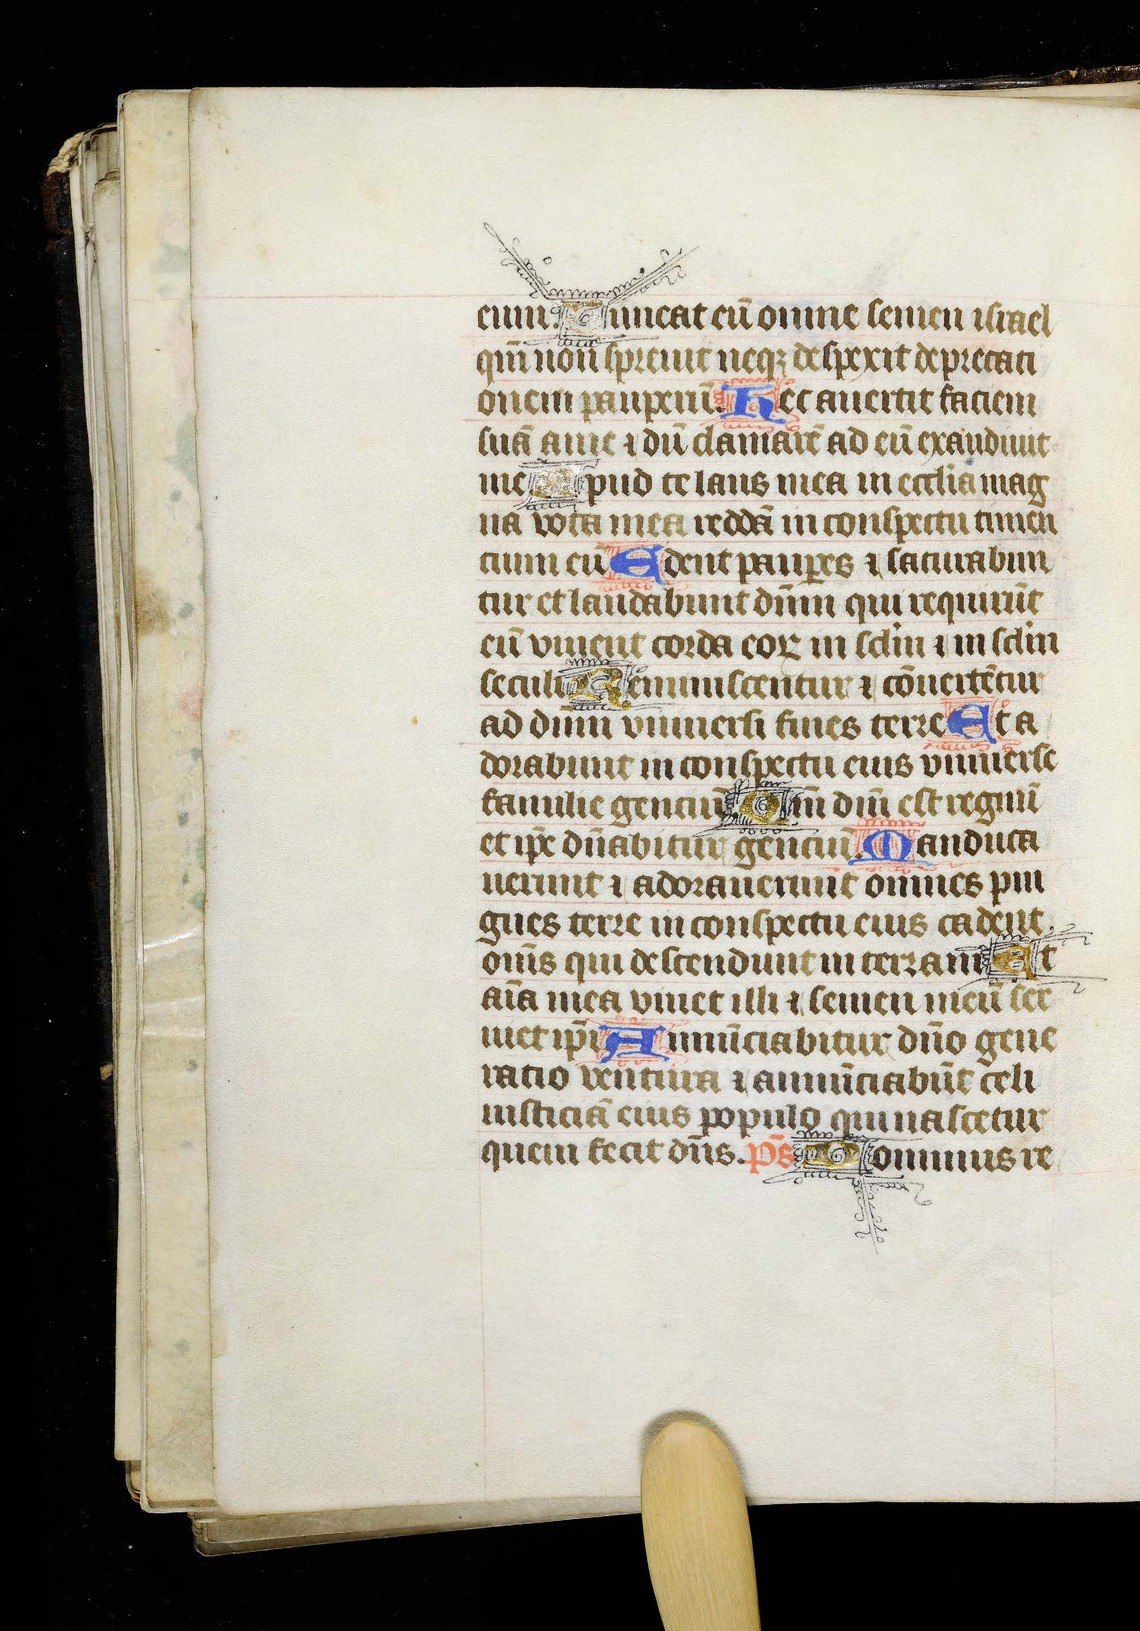 eum. Timeat eū omne semen israel
qm̄ non spreuit neqꝫ despexit deprecati
onem pauperū. Nec auertit faciem
suā a me ⁊ dū clamarē ad eū exaudiuit
me Apud te laus mea in ecclīa mag
na vota mea reddā in conspectu timen
tium eū Edent pauꝑes ⁊ saturabun
tur et laudabunt dūm qui requirūt
eū viuent corda eoꝝ in sclm̄ ⁊ in sclm̄
seculi Reminiscentur ⁊ cōuertētur
ad dūm vniuersi fines terre Et a
dorabunt in conspectu eius vniuerse
familie genciū Qm̄ dn̄i est regnū
et ip̄e dn̄abitur genciū. Manduca
uerunt ⁊ adorauerunt omnes pin
gues terre in conspectu eius cadent
om̄s qui descendunt in terram Et
aīa mea viuet illi ⁊ semen meū ser
uiet ip̄i Annūciabitur dn̄o gene
ratio ventura ⁊ annūciabūt celi
iusticiā eius populo qui nascetur
quem fecit dn̄s. p̄s Dominus re